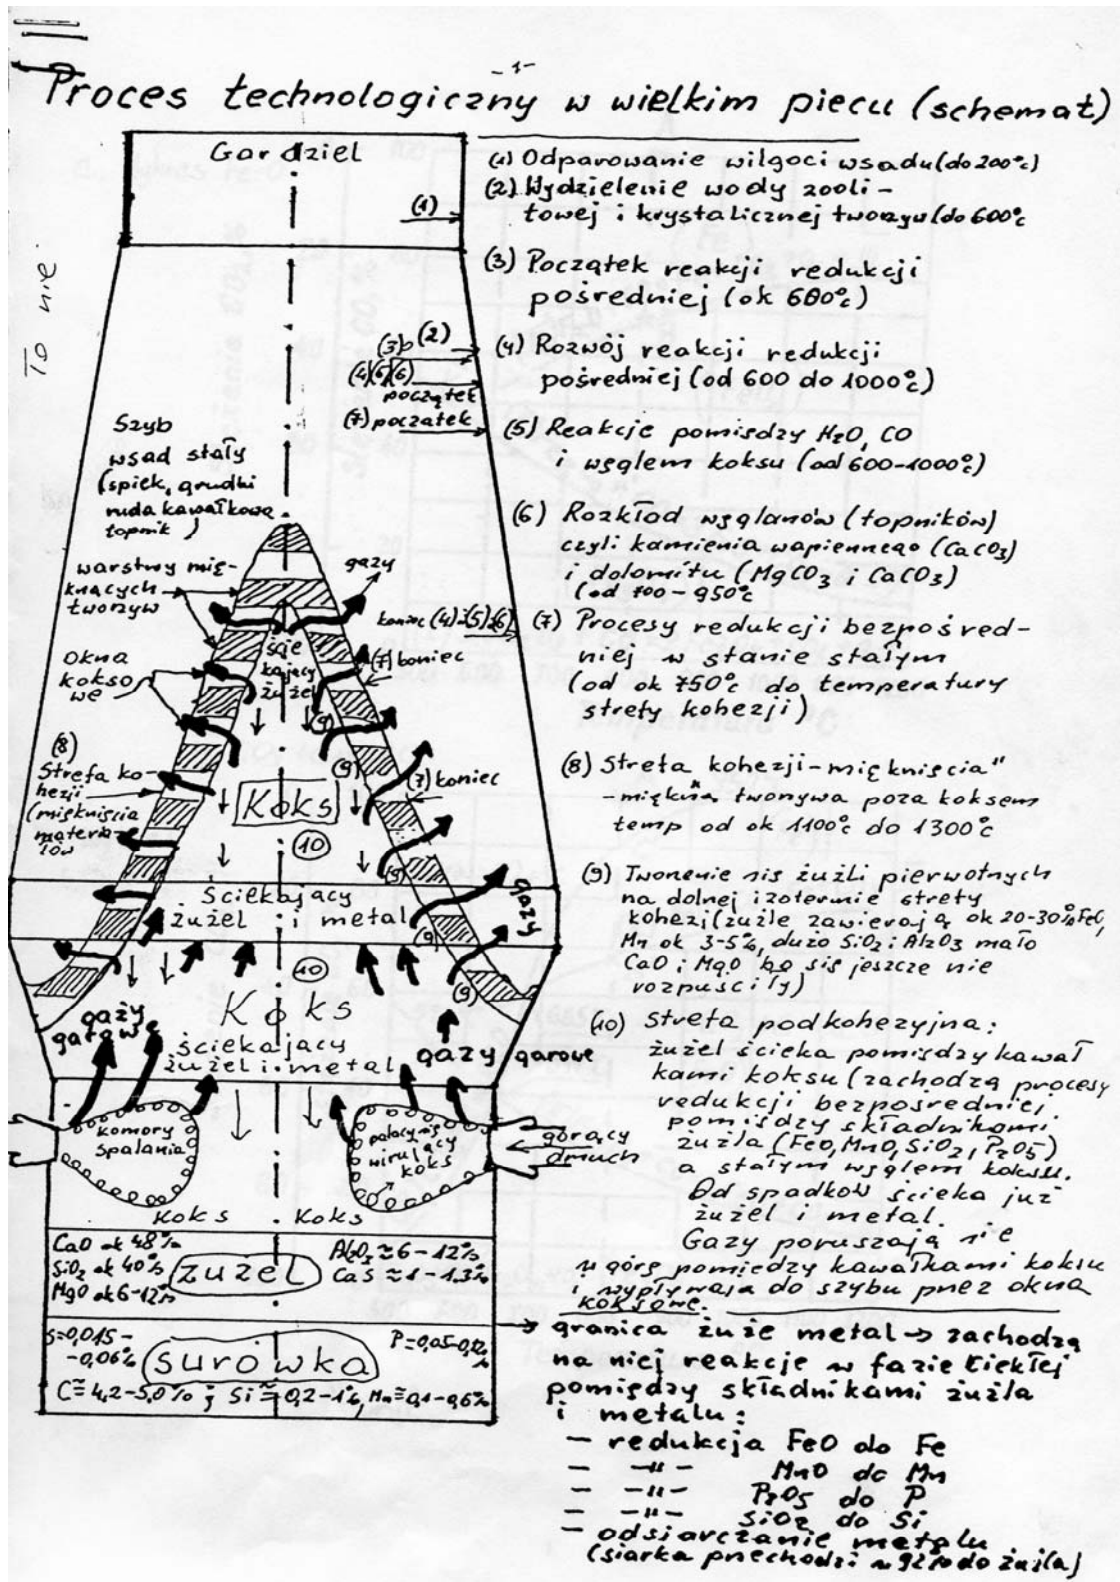 -1-
Proces technologiczny w wielkim piecu (schemat)
To nie
Gardziel
(1)
(3) (2)
(4)(5)(6)
początek
(7) początek
Szyb
wsad stały
(spiek, grudki
ruda kawałkowa
topnik)
warstwy mię-
knących
tworzyw
gazy
koniec (4) i (5) i (6)
okna
kokso
we
ście
kający
żużel
(7) koniec
(9)
(8)
Strefa ko-
hezji
(mięknięcia
materia-
łów
(9)
(7) koniec
Koks
(10)
(9)
Ściekający
żużel i metal
gazy
(9)
(10)
(9)
Koks
gazy
garowe
ściekający
żużel i metal
gazy garowe
komory
spalania
palący się
wirujący
koks
gorący
dmuch
koks koks
CaO ok 48%
SiO2 ok 40%
MgO ok 6-12%
żużel
Al2O3 ≈ 6-12%
CaS ≈ 1-1,3%
S=0,015-
-0,06%
surówka
P=0,05-0,12%
C≅4,2-5,0%; Si≅0,2-1%, Mn≅0,1-0,6%
(1) Odparowanie wilgoci wsadu (do 200°c)
(2) Wydzielenie wody zooli-
towej i krystalicznej tworzyw (do 600°c
(3) Początek reakcji redukcji
pośredniej (ok 600°c)
(4) Rozwój reakcji redukcji
pośredniej (od 600 do 1000°c)
(5) Reakcje pomiędzy H2O, CO
i węglem koksu (od 600-1000°c)
(6) Rozkład węglanów (topników)
czyli kamienia wapiennego (CaCO3)
i dolomitu (MgCO3 i CaCO3)
(od 700-950°c
(7) Procesy redukcji bezpośred-
niej w stanie stałym
(od ok 750°c do temperatury
strefy kohezji)
(8) Strefa kohezji-mięknięcia"
-miękną tworzywa poza koksem
temp od ok 1100°c do 1300°c
(9) Tworzenie się żużli pierwotnych
na dolnej izotermie strefy
kohezji (żużle zawierają ok 20-30% FeO,
Mn ok 3-5%, dużo SiO2 i Al2O3 mało
CaO i MgO bo się jeszcze nie
rozpuściły)
(10) strefa podkohezyjna:
żużel ścieka pomiędzy kawał
kami koksu (zachodzą procesy
redukcji bezpośredniej
pomiędzy składnikami
żużla (FeO, MnO, SiO2, P2O5)
a stałym węglem koksu.
Od spadków ścieka już
żużel i metal.
Gazy poruszają się
w górę pomiędzy kawałkami koksu
i wypływają do szybu przez okna
koksowe.
→ granica żuże metal → zachodzą
na niej reakcje w fazie ciekłej
pomiędzy składnikami żużla
i metalu:
- redukcja FeO do Fe
- -"- MnO do Mn
- -"- P2O5 do P
- -"- SiO2 do Si
- odsiarczanie metalu
(siarka przechodzi w 92% do żużla)